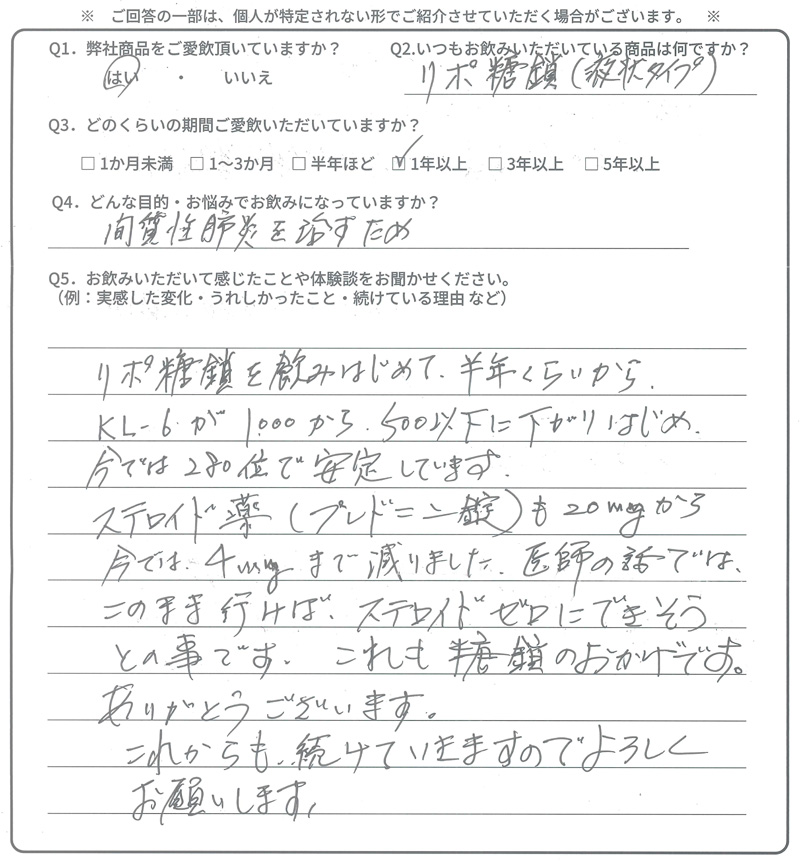 ※ ご回答の一部は、個人が特定されない形でご紹介させていただく場合がございます。 ※
Q1．弊社商品をご愛飲頂いていますか？
はい ・ いいえ
Q2.いつもお飲みいただいている商品は何ですか？
リポ糖鎖(液状タイプ)
Q3．どのくらいの期間ご愛飲いただいていますか？
□ 1か月未満 □ 1～3か月 □ 半年ほど ☑ 1年以上 □ 3年以上 □ 5年以上
Q4．どんな目的・お悩みでお飲みになっていますか？
間質性肺炎を治すため
Q5．お飲みいただいて感じたことや体験談をお聞かせください。
（例：実感した変化・うれしかったこと・続けている理由 など）
リポ糖鎖を飲みはじめて、半年くらいから、
KL-6が1000から、500以下に下がりはじめ、
今では280位で安定しています。
ステロイド薬(プレドニン錠)も20mgから
今では、4mgまで減りました。医師の話では、
このまま行けば、ステロイドゼロにできそう
との事です。これも糖鎖のおかげです。
ありがとうございます。
これからも、続けていきますのでよろしく
お願いします。